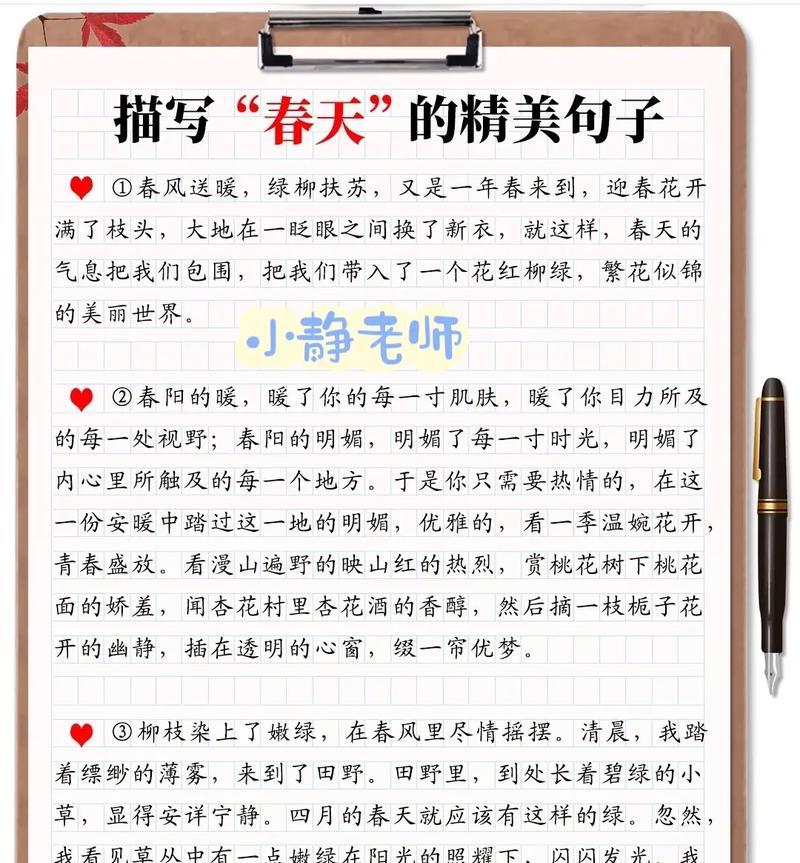 描写“春天”的精美句子
①春风送暖，绿柳扶苏，又是一年春来到，迎春花开
满了枝头，大地在一眨眼之间换了新衣，就这样，春天的
气息把我们包围，把我们带入了一个花红柳绿，繁花似锦
的美丽世界。
小静老师
②春阳的暖，暖了你的每一寸肌肤，暖了你目力所及
的每一处视野；春阳的明媚，明媚了每一寸时光，明媚了
内心里所触及的每一个地方。于是你只需要热情的，在这
一份安暖中踏过这一地的明媚，优雅的，看一季温婉花开，
青春盛放。看漫山遍野的映山红的热烈，赏桃花树下桃花
面的娇羞，闻杏花村里杏花酒的香醇，然后摘一枝栀子花
开的幽静，插在透明的心窗，缀一帘优梦。
③柳枝染上了嫩绿，在春风里尽情摇摆。清晨，我踏
着缥缈的薄雾，来到了田野。田野里，到处长着碧绿的小
草，显得安详宁静。四月的春天就应该有这样的绿。忽然，
我看见草丛中有一点嫩绿在阳光的照耀下，闪闪发光。我